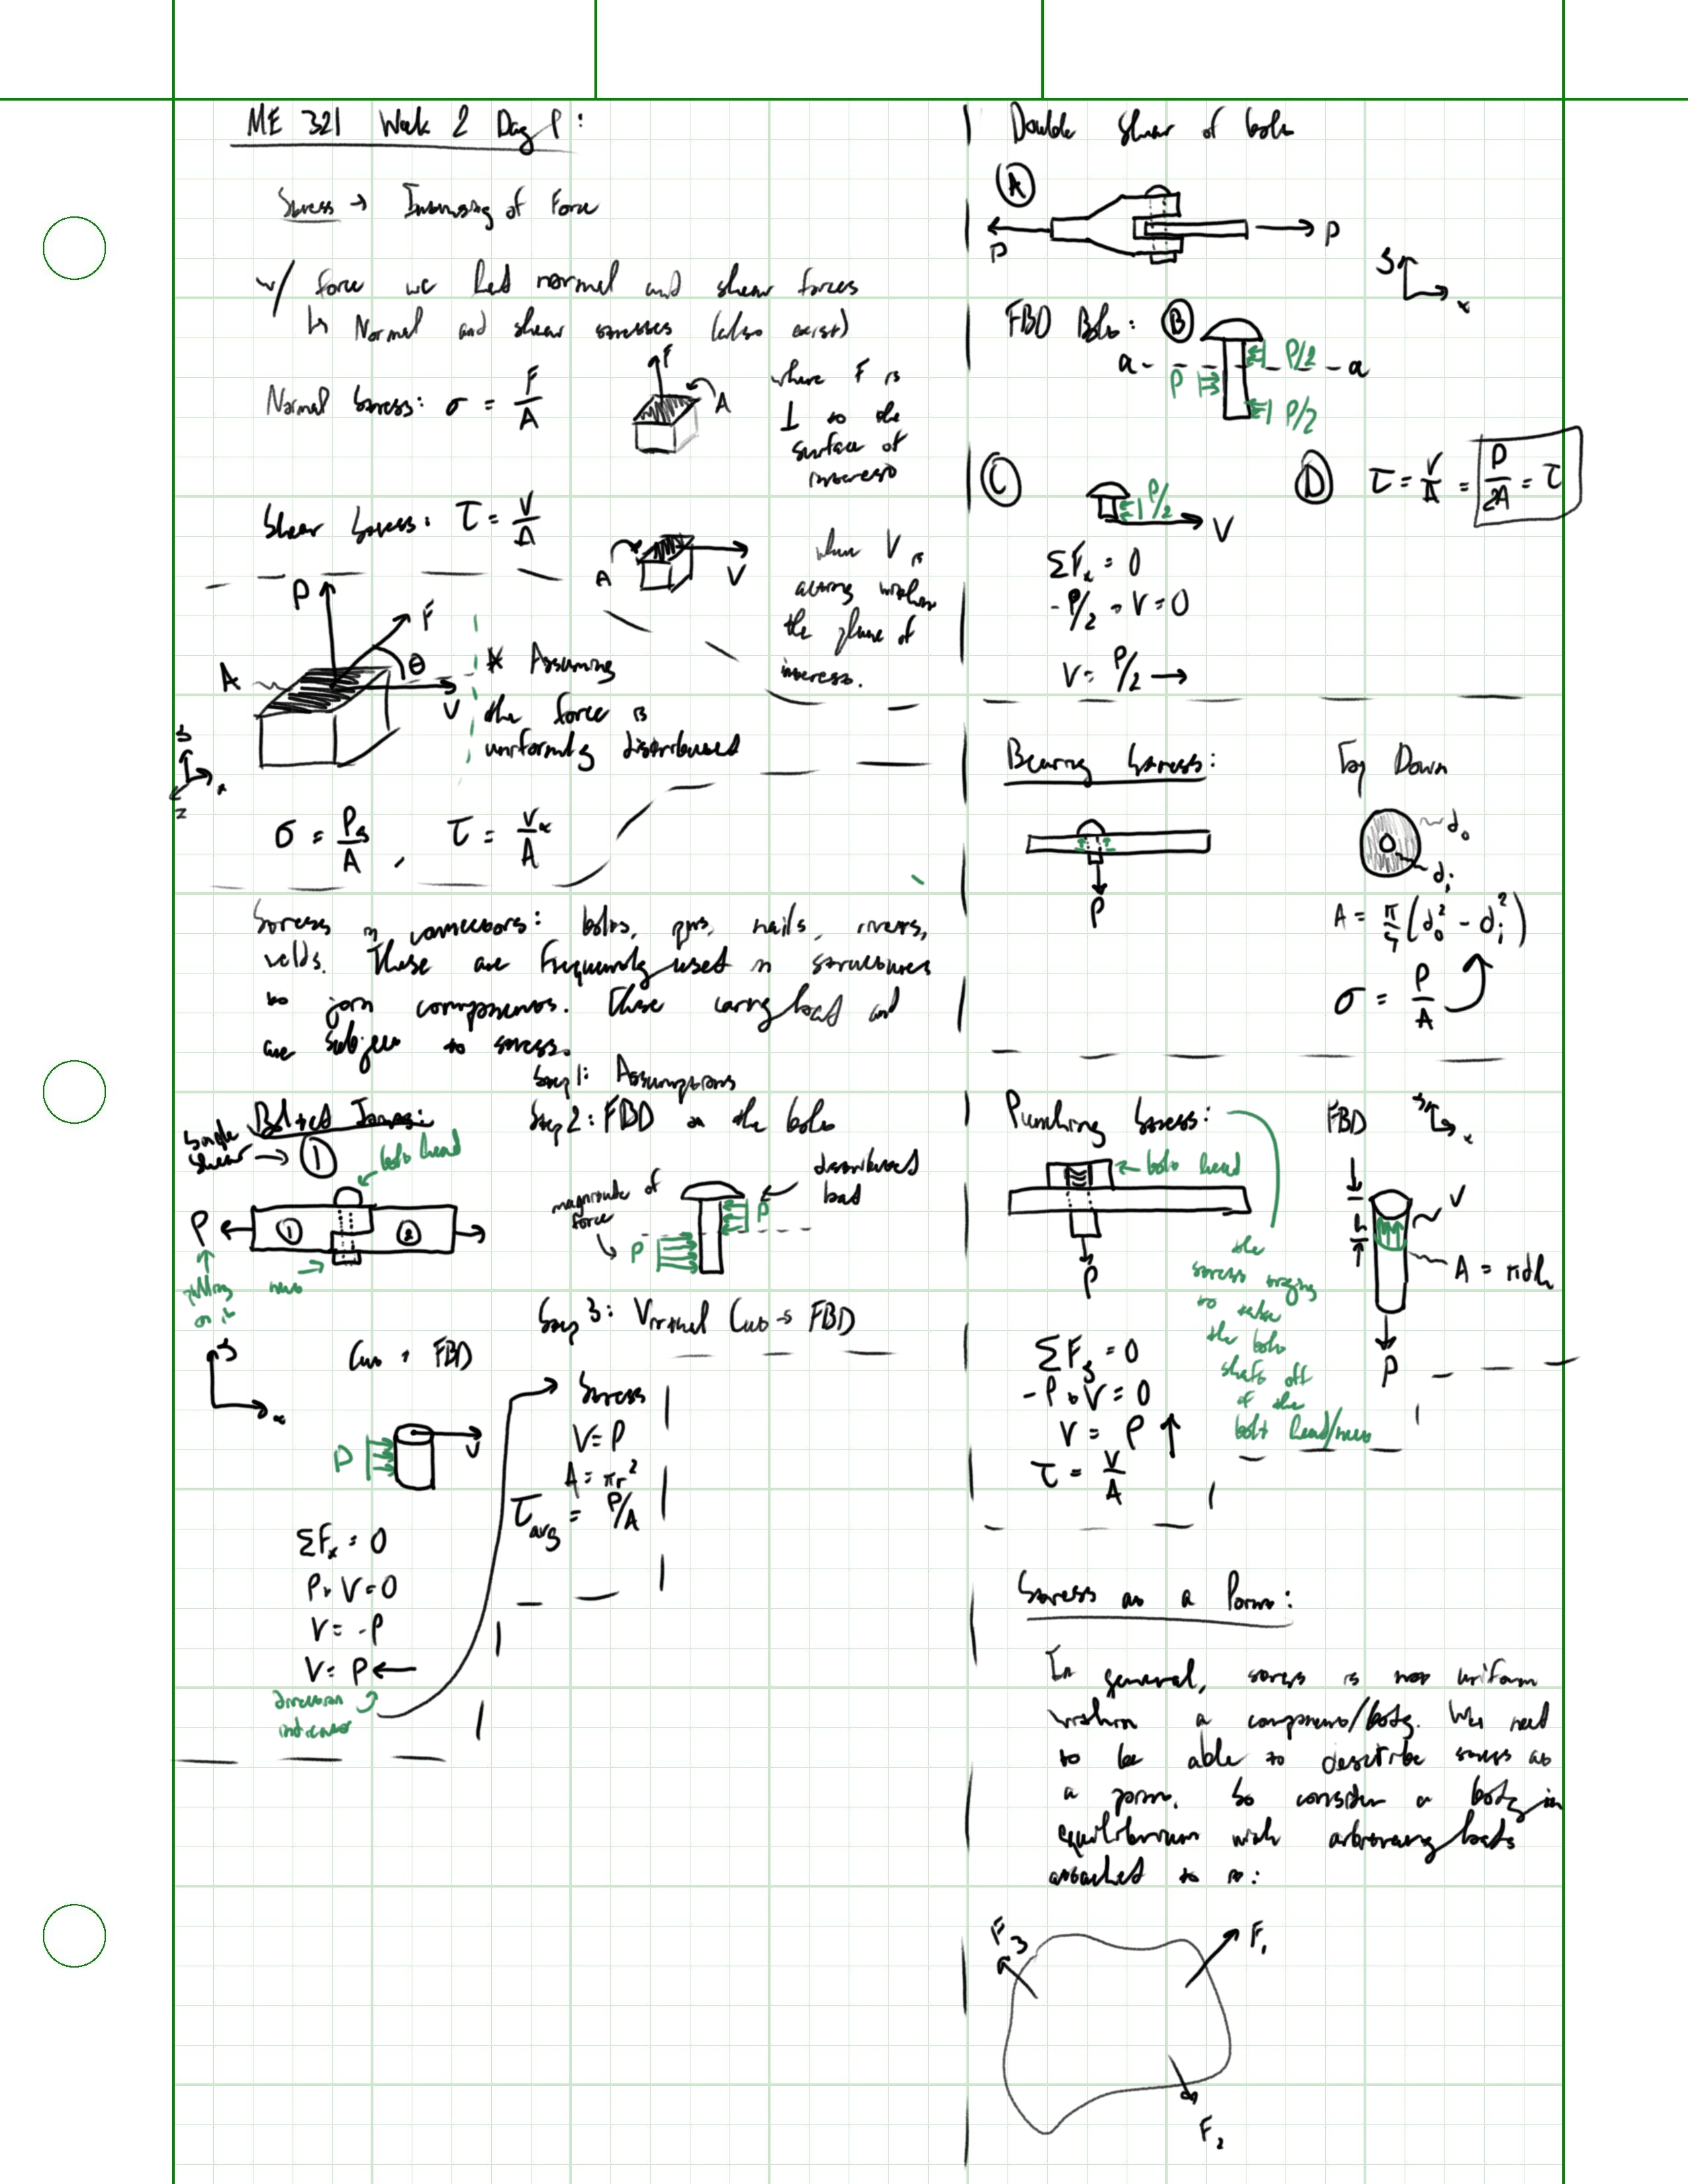 ME 321 Week 2 Day 1:
Stress → Intensity of Force
w/ force we had normal and shear forces
↳ Normal and shear stresses (also exist)
Normal Stress: σ = F/A
F
A
where F is
⊥ to the
surface of
interest
Shear Stress: τ = V/A
A
V
when V is
acting within
the plane of
interest.
P
F
θ
A
V
* Assuming
the force is
uniformly distributed
y
x
z
σ = Py/A , τ = Vx/A
Stress in connectors: bolts, pins, nails, rivets,
welds. These are frequently used in structures
to join components. These carry load and
are subject to stress.
Step 1: Assumptions
Bolted Joints:
Step 2: FBD on the bolt
Single
shear → ①
bolt head
P
①
②
pulling
on it
nut
magnitude of
force
distributed
load
P
P
Step 3: Virtual Cut → FBD
y
x
Cut + FBD
P
V
ΣFx = 0
P + V = 0
V = -P
V = P ←
direction
indicator
Stress
V = P
A = πr²
τavg = P/A
Double Shear of bolt
Ⓐ
P
P
y
x
FBD Bolt: Ⓑ
a - - - a
P/2
P
P/2
Ⓒ
P/2
V
ΣFx = 0
-P/2 + V = 0
V = P/2 →
Ⓓ τ = V/A = P/2A = τ
Bearing Stress:
Top Down
P
do
di
A = π/4 (do² - di²)
σ = P/A
Punching Stress:
FBD
y
x
bolt head
P
the
stress trying
to take
the bolt
shaft off
of the
bolt head/nut
h
V
A = πdh
P
ΣFy = 0
-P + V = 0
V = P ↑
τ = V/A
Stress at a Point:
In general, stress is not uniform
within a component/body. We need
to be able to describe stress at
a point. So consider a body in
equilibrium with arbitrary loads
attached to it:
F3
F1
F2